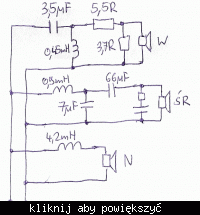 3,5μF 5,5R
0,45mH 3,7R W
0,5mH 66μF ŚR
7μF
4,2mH N
kliknij aby powiększyć